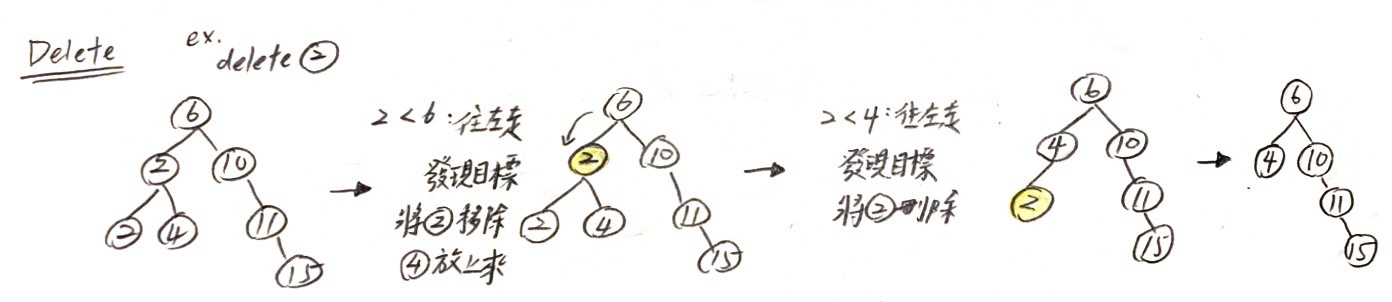 Delete
ex.
delete ②
6
2 10
2 4 11
15
2 < 6 : 往左走
發現目標
將②移除
④放上來
6
2 10
2 4 11
15
2 < 4 : 往左走
發現目標
將②刪除
6
4 10
2 11
15
6
4 10
11
15